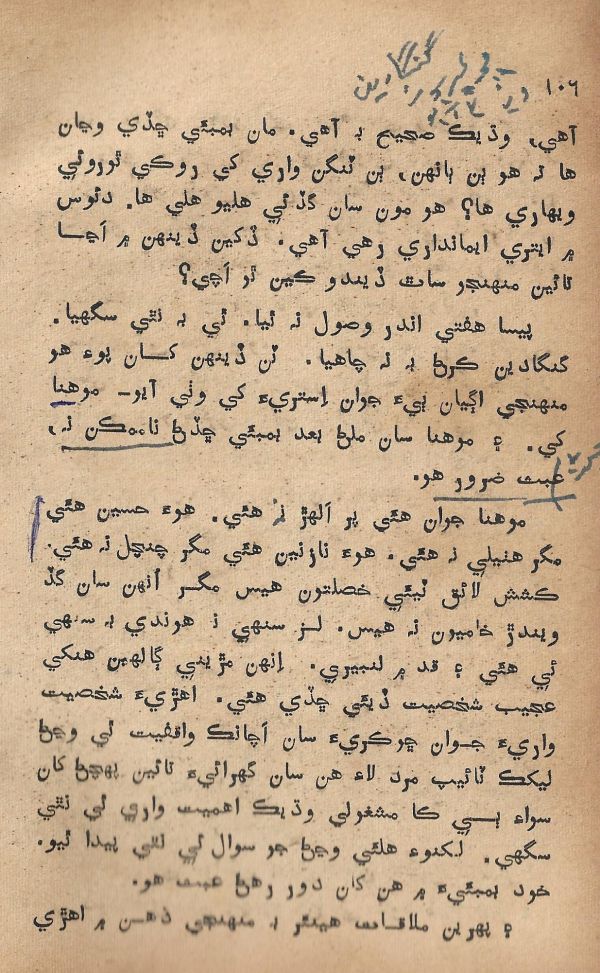 ١٠٦
گنگادين
آهي، وڌيڪ صحيح بہ آهي. مان بمبئي ڇڏي وڃان
ها تہ هو ٻن ٻانهن، ٻن ٽنگن واري کي روڪي ٿوروئي
ويهاري ها؟ هو مون سان گڏ ئي هليو هلي ها. دئوس
۾ ايتري ايمانداري رهي آهي. ڏکين ڏينهن ۾ اڃا
تائين منهنجو ساٿ ڏيندو ڪين ٿو اچي؟
پيسا هفتي اندر وصول نہ ٿيا. ٿي بہ نٿي سگهيا.
گنگادين ڪرڻ بہ نہ چاهيا. ٽن ڏينهن کان پوءِ هو
منهنجي اڳيان ٻيءَ جوان اِستريءَ کي وٺي آيو- موهنا
کي. ۽ موهنا سان ملڻ بعد بمبئي ڇڏڻ ناممڪن نہ،
عبث ضرور هو.
موهنا جوان هئي پر الهڙ نہ هئي. هوءَ حسين هئي
مگر هٺيلي نہ هئي. هوءَ نازنين هئي مگر چنچل نہ هئي.
ڪشش لائق ٽيئي خصلتون هيس مگر اُنهن سان گڏ
ويندڙ خاميون نہ هيس. لز سنهي نہ هوندي بہ سنهي
ٿي هئي ۽ قد ۾ لنبيري. اِنهن مڙيني ڳالهين هنکي
عجيب شخصيت ڏيئي ڇڏي هئي. اهڙيءَ شخصيت
واريءَ جوان ڇوڪريءَ سان اَچانڪ واقفيت ٿي وڃڻ
ليکڪ ٽائيپ مرد لاءِ هن سان گهرائيءَ تائين پهچڻ کان
سواءِ ٻي ڪا مشغولي وڌيڪ اهميت واري ٿي نٿي
سگهي. لکنوءَ هلئي وڃڻ جو سوال ئي نٿي پيدا ٿيو.
خود بمبئيءَ ۾ هن کان دور رهڻ عبث هو.
۽ پهرين ملاقات هيئر بہ منهنجي ذهن ۾ اهڙي